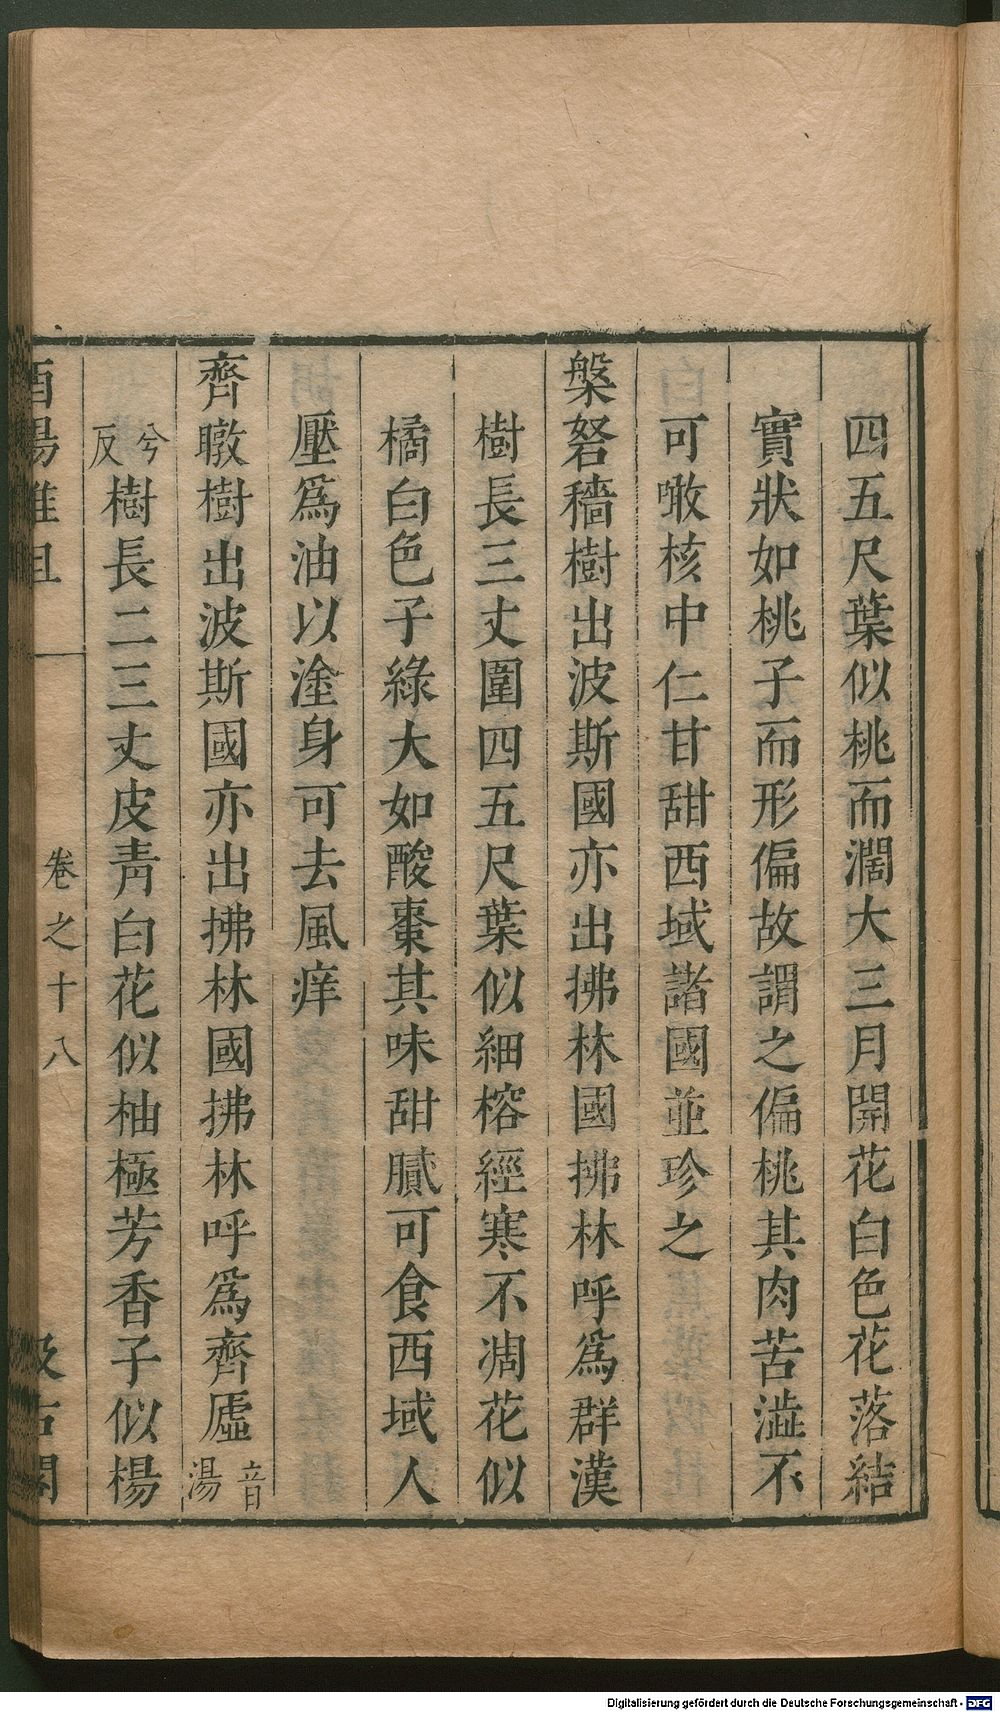 四五尺葉似桃而濶大三月開花白色花落結
實狀如桃子而形偏故謂之偏桃其肉苦澁不
可噉核中仁甘甜西域諸國並珍之
槃砮穡樹出波斯國亦出拂林國拂林呼爲群漢
樹長三丈圍四五尺葉似細榕經寒不凋花似
橘白色子綠大如酸棗其味甜膩可食西域人
壓爲油以塗身可去風痒
齊暾樹出波斯國亦出拂林國拂林呼爲齊虛音湯
兮反樹長二三丈皮靑白花似柚極芳香子似楊
酉陽雜俎 卷之十八 汲古閣
Digitalisierung gefördert durch die Deutsche Forschungsgemeinschaft - DFG